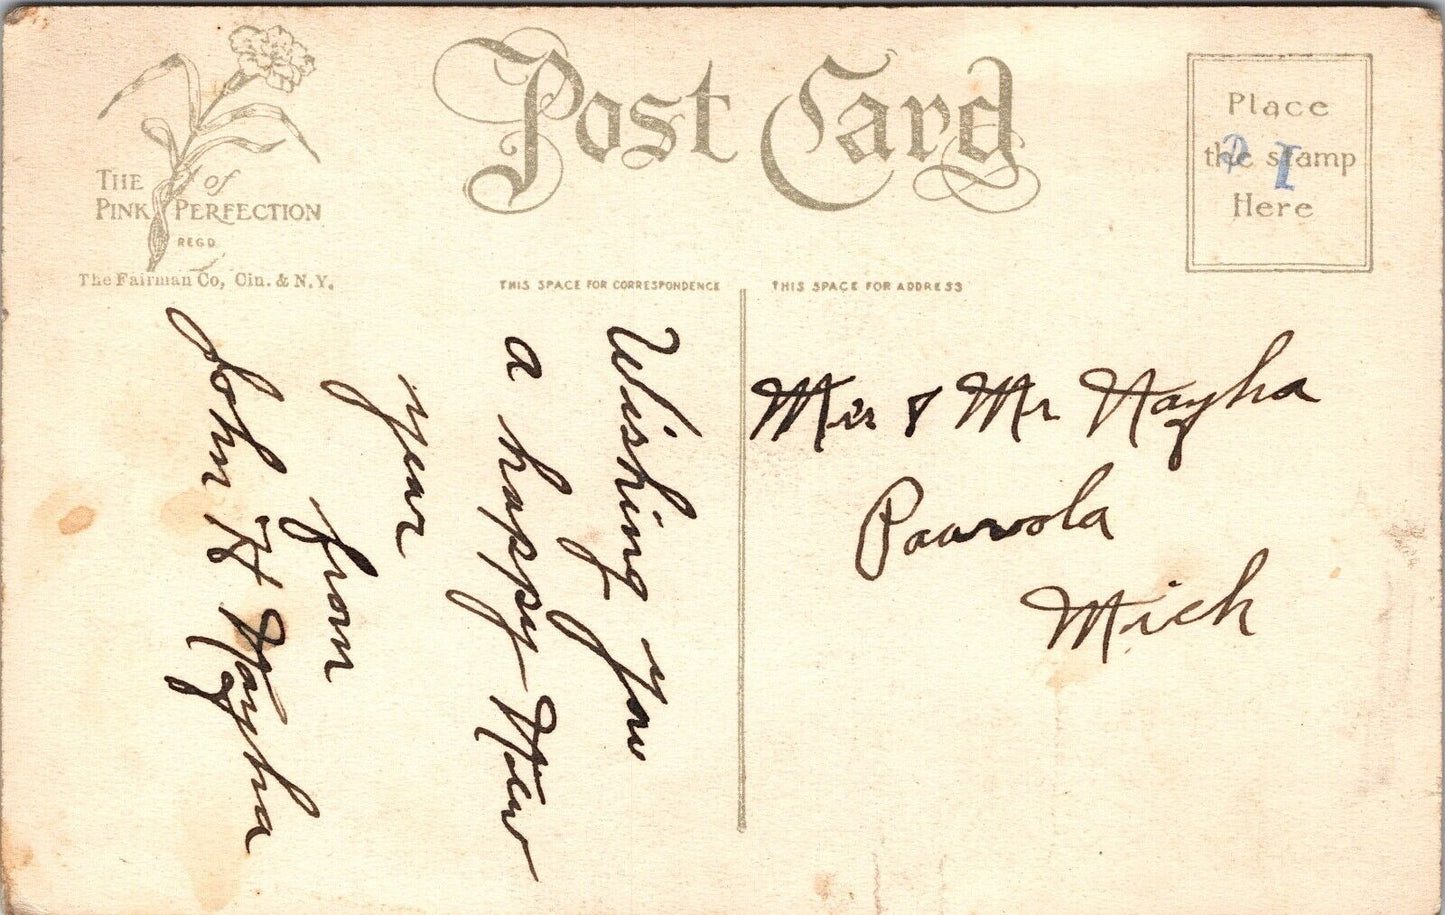 Post Card
THE PINK of PERFECTION
REGD
The Fairman Co, Cin. & N.Y.
Place
the stamp
Here
THIS SPACE FOR CORRESPONDENCE
THIS SPACE FOR ADDRESS
Wishing you
a happy New
year
from
John H Nayha
Mrs & Mr Nayha
Paavola
Mich